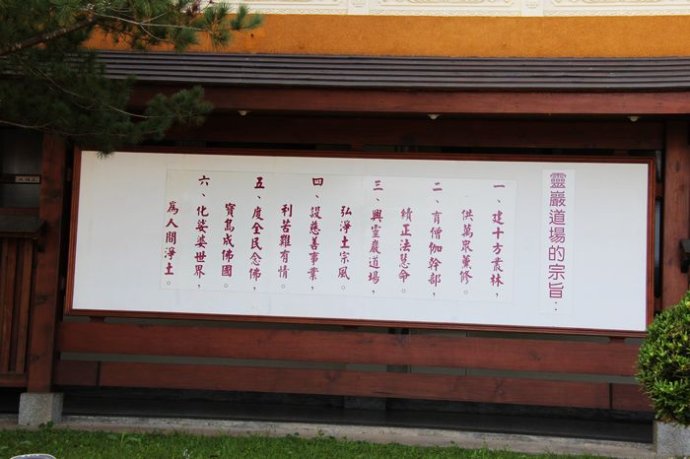 靈巖道場的宗旨：
一、建十方叢林，
供萬眾薰修。
二、育僧伽幹部，
續正法慧命。
三、興靈巖道場，
弘淨土宗風。
四、設慈善事業，
利苦難有情。
五、度全民念佛，
寶島成佛國。
六、化娑婆世界，
為人間淨土。